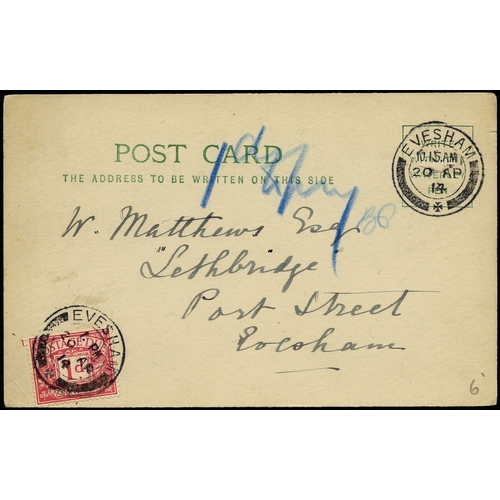 POST CARD
THE ADDRESS TO BE WRITTEN ON THIS SIDE
EVESHAM
10.15 AM
20 AP
14
W. Matthews Esq.
"Lethbridge"
Port Street
Evesham
EVESHAM
1d
6